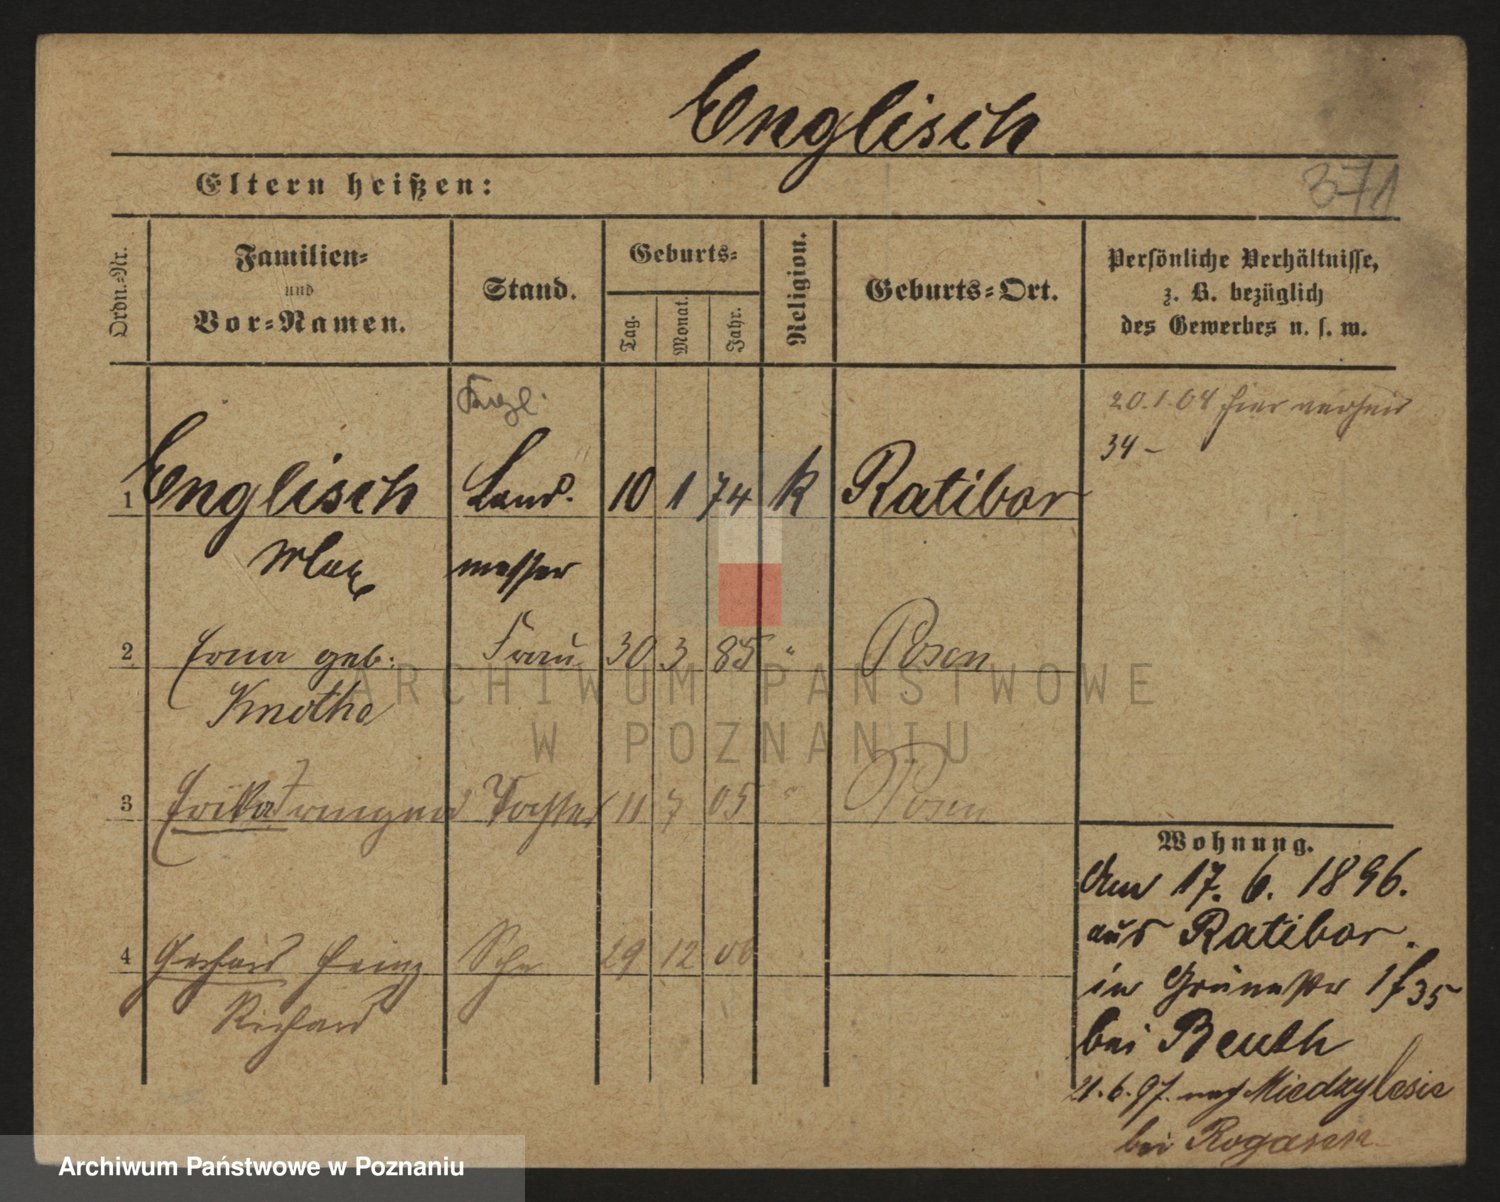 Englisch
Eltern heißen:
371
Ordn.-Nr.
Familien-
und
Vor-Namen.
Stand.
Geburts-
Tag.
Monat.
Jahr.
Religion.
Geburts-Ort.
Persönliche Verhältnisse,
z. B. bezüglich
des Gewerbes u. s. w.
20.1.04 hier
34-
1 Englisch Land- 10 1 74 k Ratibor
Max messer
2 Erna geb. Frau 30 3 85 " Posen
Knothe
3 Erika Irmgard Tochter 11 7 05 " Posen
4 Gerhard Heinz Sohn 29 12 06
Richard
Wohnung.
Am 17. 6. 1896.
aus Ratibor.
in Grünestr 1 f 35
bei Beuth
21.6.97. nach Miedzylesie
bei Rogasen
ARCHIWUM PAŃSTWOWE
W POZNANIU
Archiwum Państwowe w Poznaniu